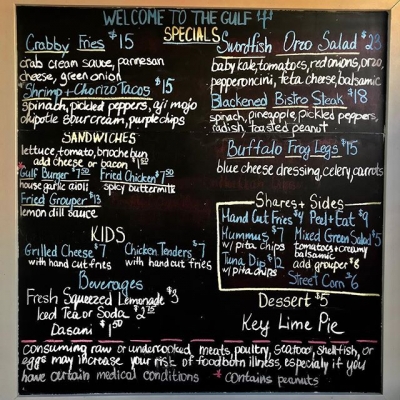 WELCOME TO THE GULF
SPECIALS
Crabby Fries $15
crab cream sauce, parmesan
cheese, green onion
Shrimp + Chorizo Tacos $15
spinach, pickled peppers, aji mojo
chipotle sour cream, purple chips
Swordfish Orzo Salad $23
baby kale, tomatoes, red onions, orzo,
pepperoncini, feta cheese, balsamic
Blackened Bistro Steak $18
spinach, pineapple, pickled peppers,
radish, toasted peanut
Buffalo Frog Legs $15
blue cheese dressing, celery, carrots
SANDWICHES
lettuce, tomato, brioche bun
add cheese or bacon $1.50
* Gulf Burger $7.50 Fried Chicken $7.50
house garlic aioli spicy buttermilk
Fried Grouper $13
lemon dill sauce
KIDS
Grilled Cheese $7 Chicken Tenders $7
with hand cut fries with hand cut fries
Beverages
Fresh Squeezed Lemonade $3
Iced Tea or Soda $2.25
Dasani $1.50
Shares + Sides
Hand Cut Fries $4 Peel + Eat $9
Hummus $7 Mixed Green Salad $5
w/ pita chips tomatoes + creamy
balsamic
Tuna Dip $12 add grouper $8
w/ pita chips Street Corn $6
Dessert $5
Key Lime Pie
consuming raw or undercooked meats, poultry, seafood, shellfish, or
eggs may increase your risk of foodborn illness, especially if you
have certain medical conditions * contains peanuts